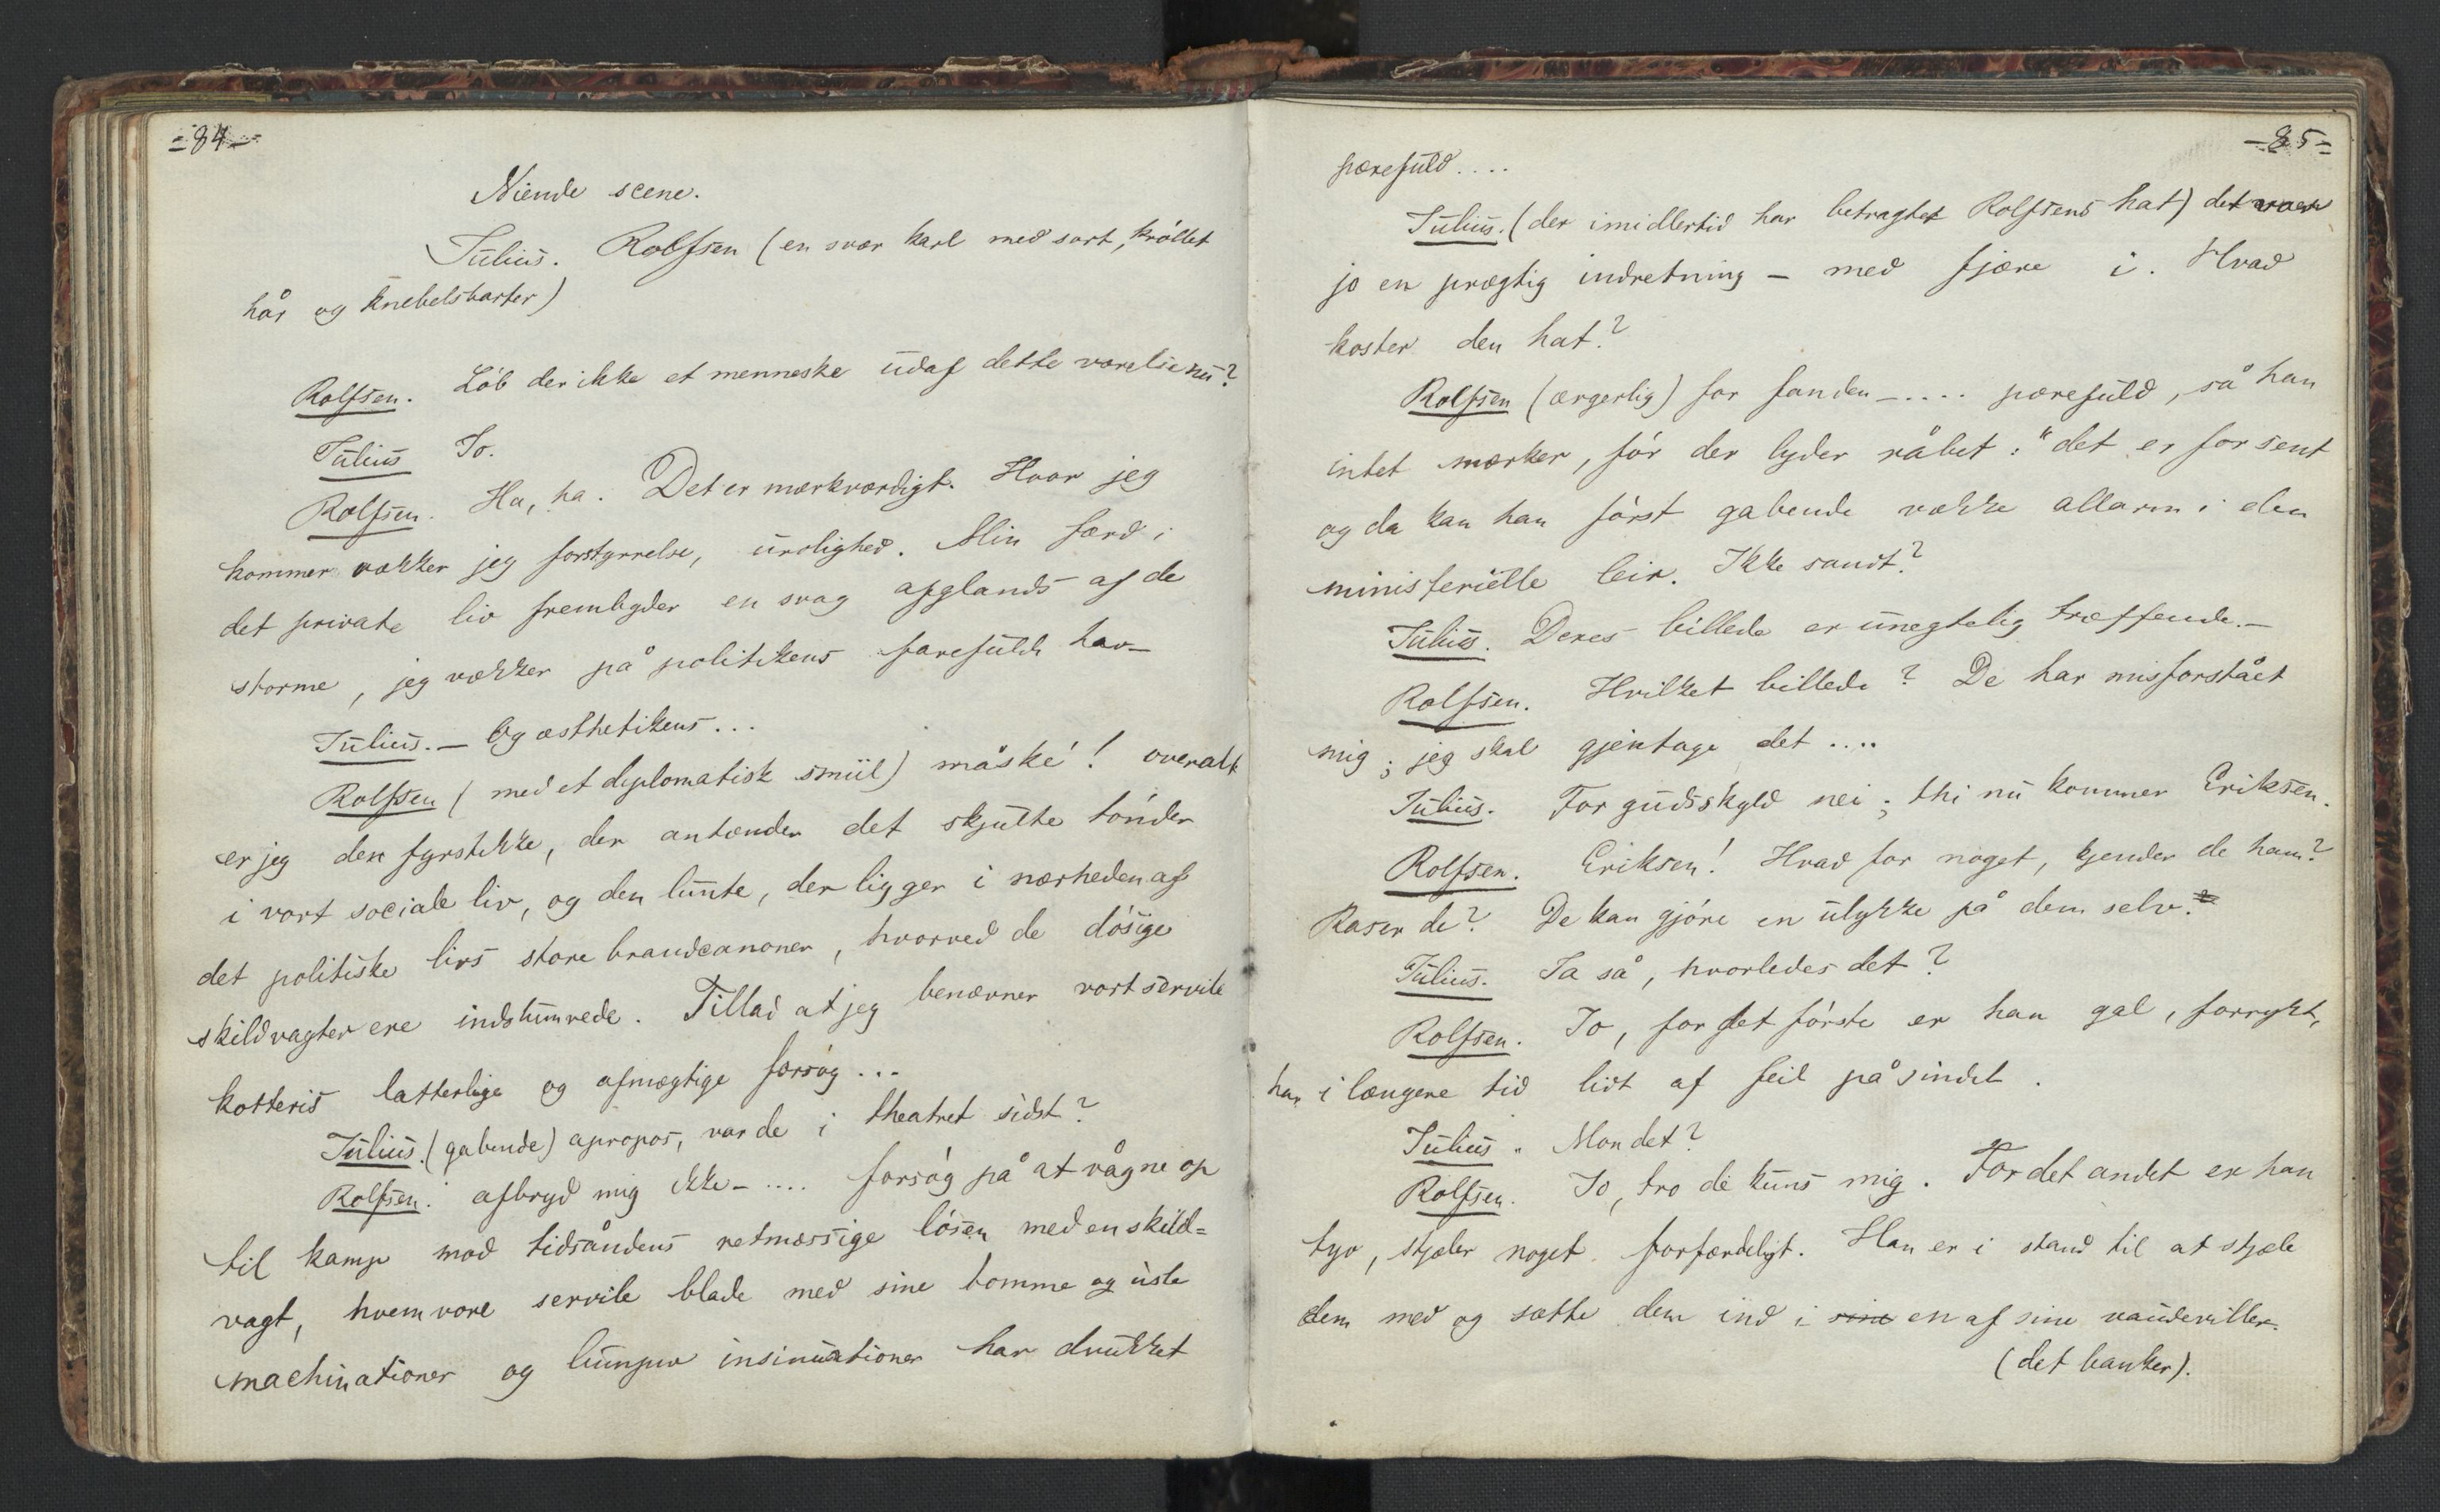 -84-
Niende scene.
Julius. Rolfsen (en svær karl med sort, krøllet
hår og knebelsbarter)
Rolfsen. Løb der ikke et menneske udaf dette værelse nu?
Julius Jo.
Rolfsen. Ha, ha. Det er mærkværdigt. Hvor jeg
kommer vækker jeg forstyrrelse, urolighed. Min færd i
det private liv frembyder en svag afglands af de
storme, jeg vækker på politikens farefulde hav-
Julius. - Og æsthetikens...
Rolfsen (med et diplomatisk smiil) måské! overalt
er jeg den fyrstikke, der antænder det skjulte tønder
i vort sociale liv, og den lunte, der ligger i nærheden af
det politiske livs store brandcanoner, hvorved de døsige
skildvagter ere indslumrede. Tillad at jeg benævner vort servile
kotteris latterlige og afmægtige forsøg...
Julius. (gabende) apropos, var de i theatret sidst?
Rolfsen. afbryd mig ikke- .... forsøg på at vågne op
til kamp mod tidsåndens retmæssige løsen med en skild=
vagt, hvem vore servile blade med sine tomme og usle
machinationer og lumpne insinuationer har drukket
-85-
pærefuld....
Julius. (der imidlertid har betragtet Rolfsens hat) det var
jo en prægtig indretning - med fjære i. Hvad
koster den hat?
Rolfsen (ærgerlig) for fanden-.... pærefuld, så han
intet mærker, før der lyder råbet: "det er for sent
og da kan han først gabende vække allarm i den
ministerielle leir. Ikke sandt?
Julius. Deres billede er unegtelig træffende.-
Rolfsen. Hvilket billede? De har misforstået
mig; jeg skal gjentage det....
Julius. For gudsskyld nei; thi nu kommer Eriksen.
Rolfsen. Eriksen! Hvad for noget, kjender de ham?
Raser de? De kan gjøre en ulykke på dem selv.
Julius. Ja så, hvorledes det?
Rolfsen. Jo, for det første er han gal, forrykt,
har i længere tid lidt af feil på sindet.
Julius. Mon det?
Rolfsen. Jo, tro de kuns mig. For det andet er han
tyv, stjæler noget forfærdeligt. Han er i stand til at stjæle
dem med og sætte dem ind i sine en af sine vaudeviller.
(det banker).